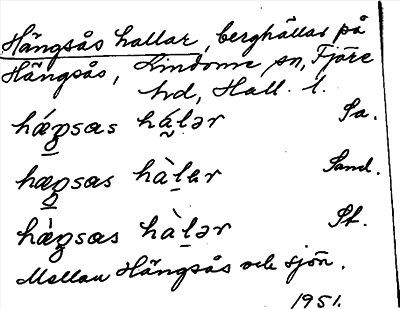 Hängsås hallar, berghällar på
Hängsås, Lindome sn, Fjäre
hd, Hall. l.
hæŋsas hàlər Sa.
hæŋsas hàlɐr Sand.
hæ̀ŋsas hàlər St.
Mellan Hängsås och sjön.
1951.